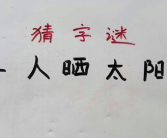 猜字谜
人晒太阳